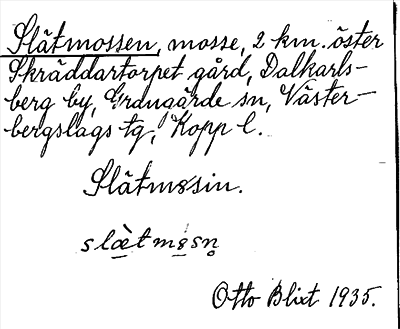 Slätmossen, mosse, 2 km. öster
Skräddartorpet gård, Dalkarls-
berg by, Grangärde sn, Väster-
bergslags tg, Kopp l.
Slätmosin.
slæ̀tmɞsn̥
Otto Blixt 1935.